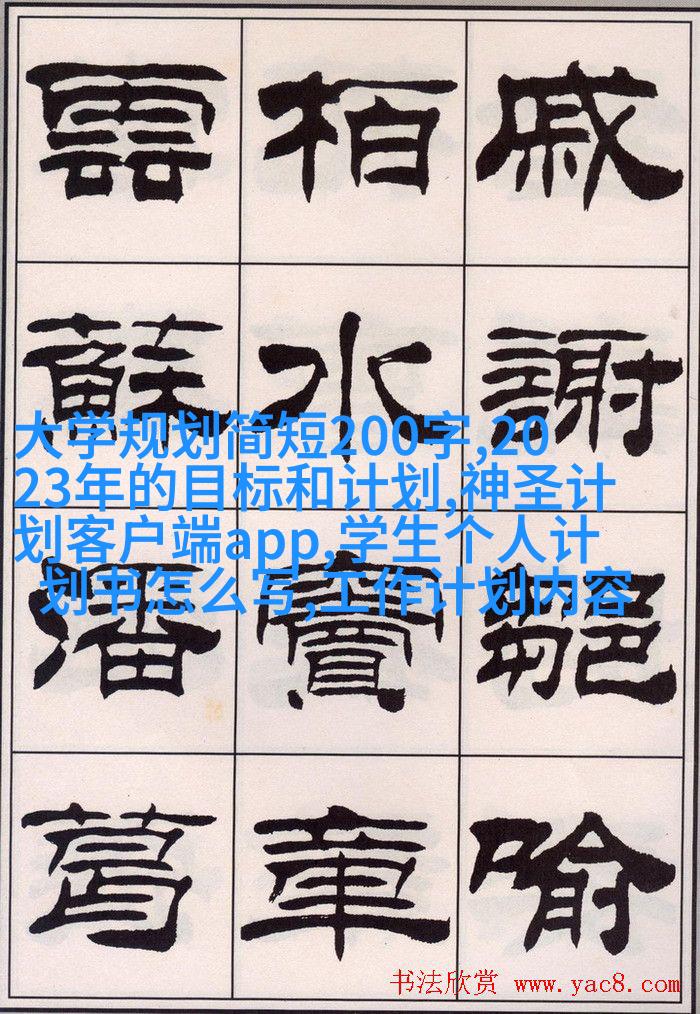 戚謝鄒喻
柏水竇章
雲蘇潘葛
大学规划简短200字,20
23年的目标和计划,神圣计
划客户端app,学生个人计
划书怎么写,工作计划内容
书法欣赏 www.yac8.com